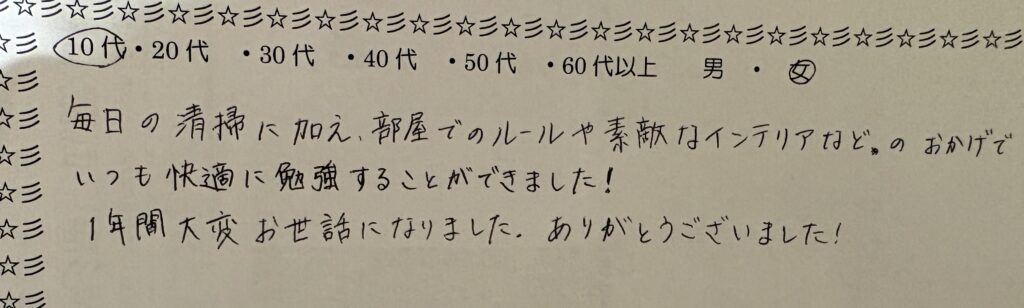 10代・20代 ・30代 ・40代 ・50代 ・60代以上 男 ・ 女
毎日の清掃に加え、部屋でのルールや素敵なインテリアなど。のおかげで
いつも快適に勉強することができました!
1年間大変お世話になりました。ありがとうございました!